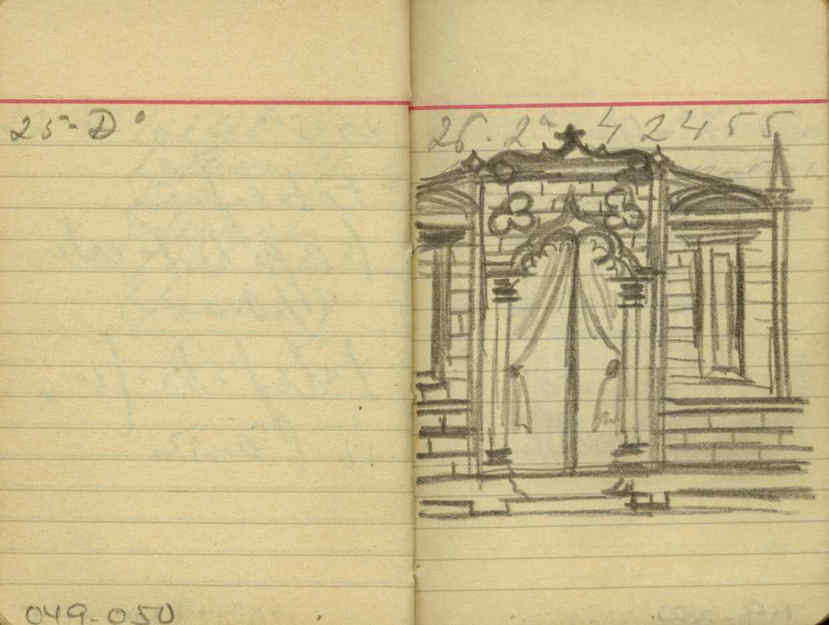 25ª Dº
26. 2ª 42455
049-050